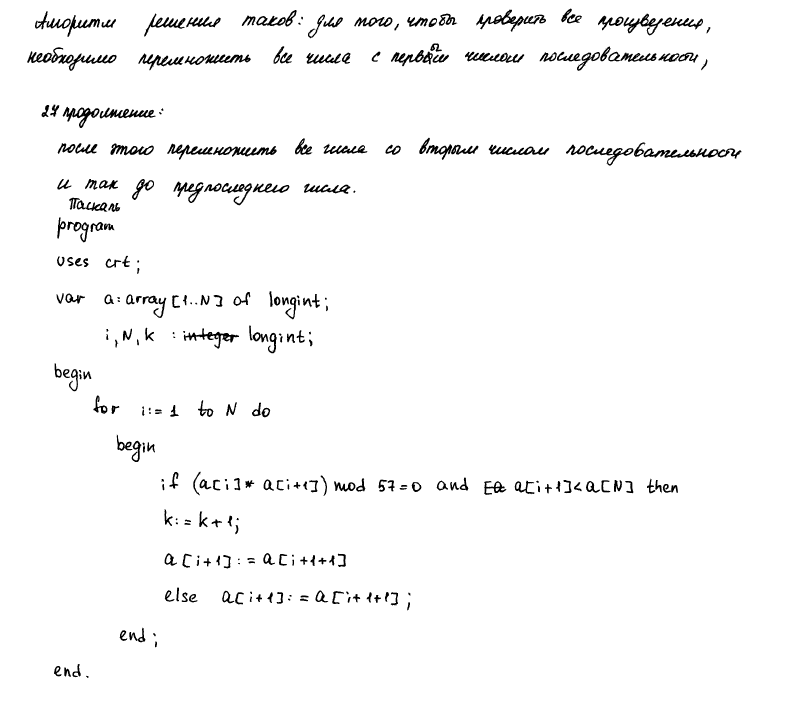 Алгоритм решения таков: для того, чтобы проверить все произведения,
необходимо перемножить все числа с первым числом последовательности,
27 продолжение:
после этого перемножить все числа со вторым числом последовательности
и так до предпоследнего числа.
Паскаль
program
uses crt;
var a: array [1..N] of longint;
i, N, k : integer longint;
begin
for i:= 1 to N do
begin
if (a[i]* a[i+1]) mod 57=0 and a[i+1]<a[N] then
k:= k+1;
a[i+1]:= a[i+1+1]
else a[i+1]:= a[i+1+1];
end;
end.